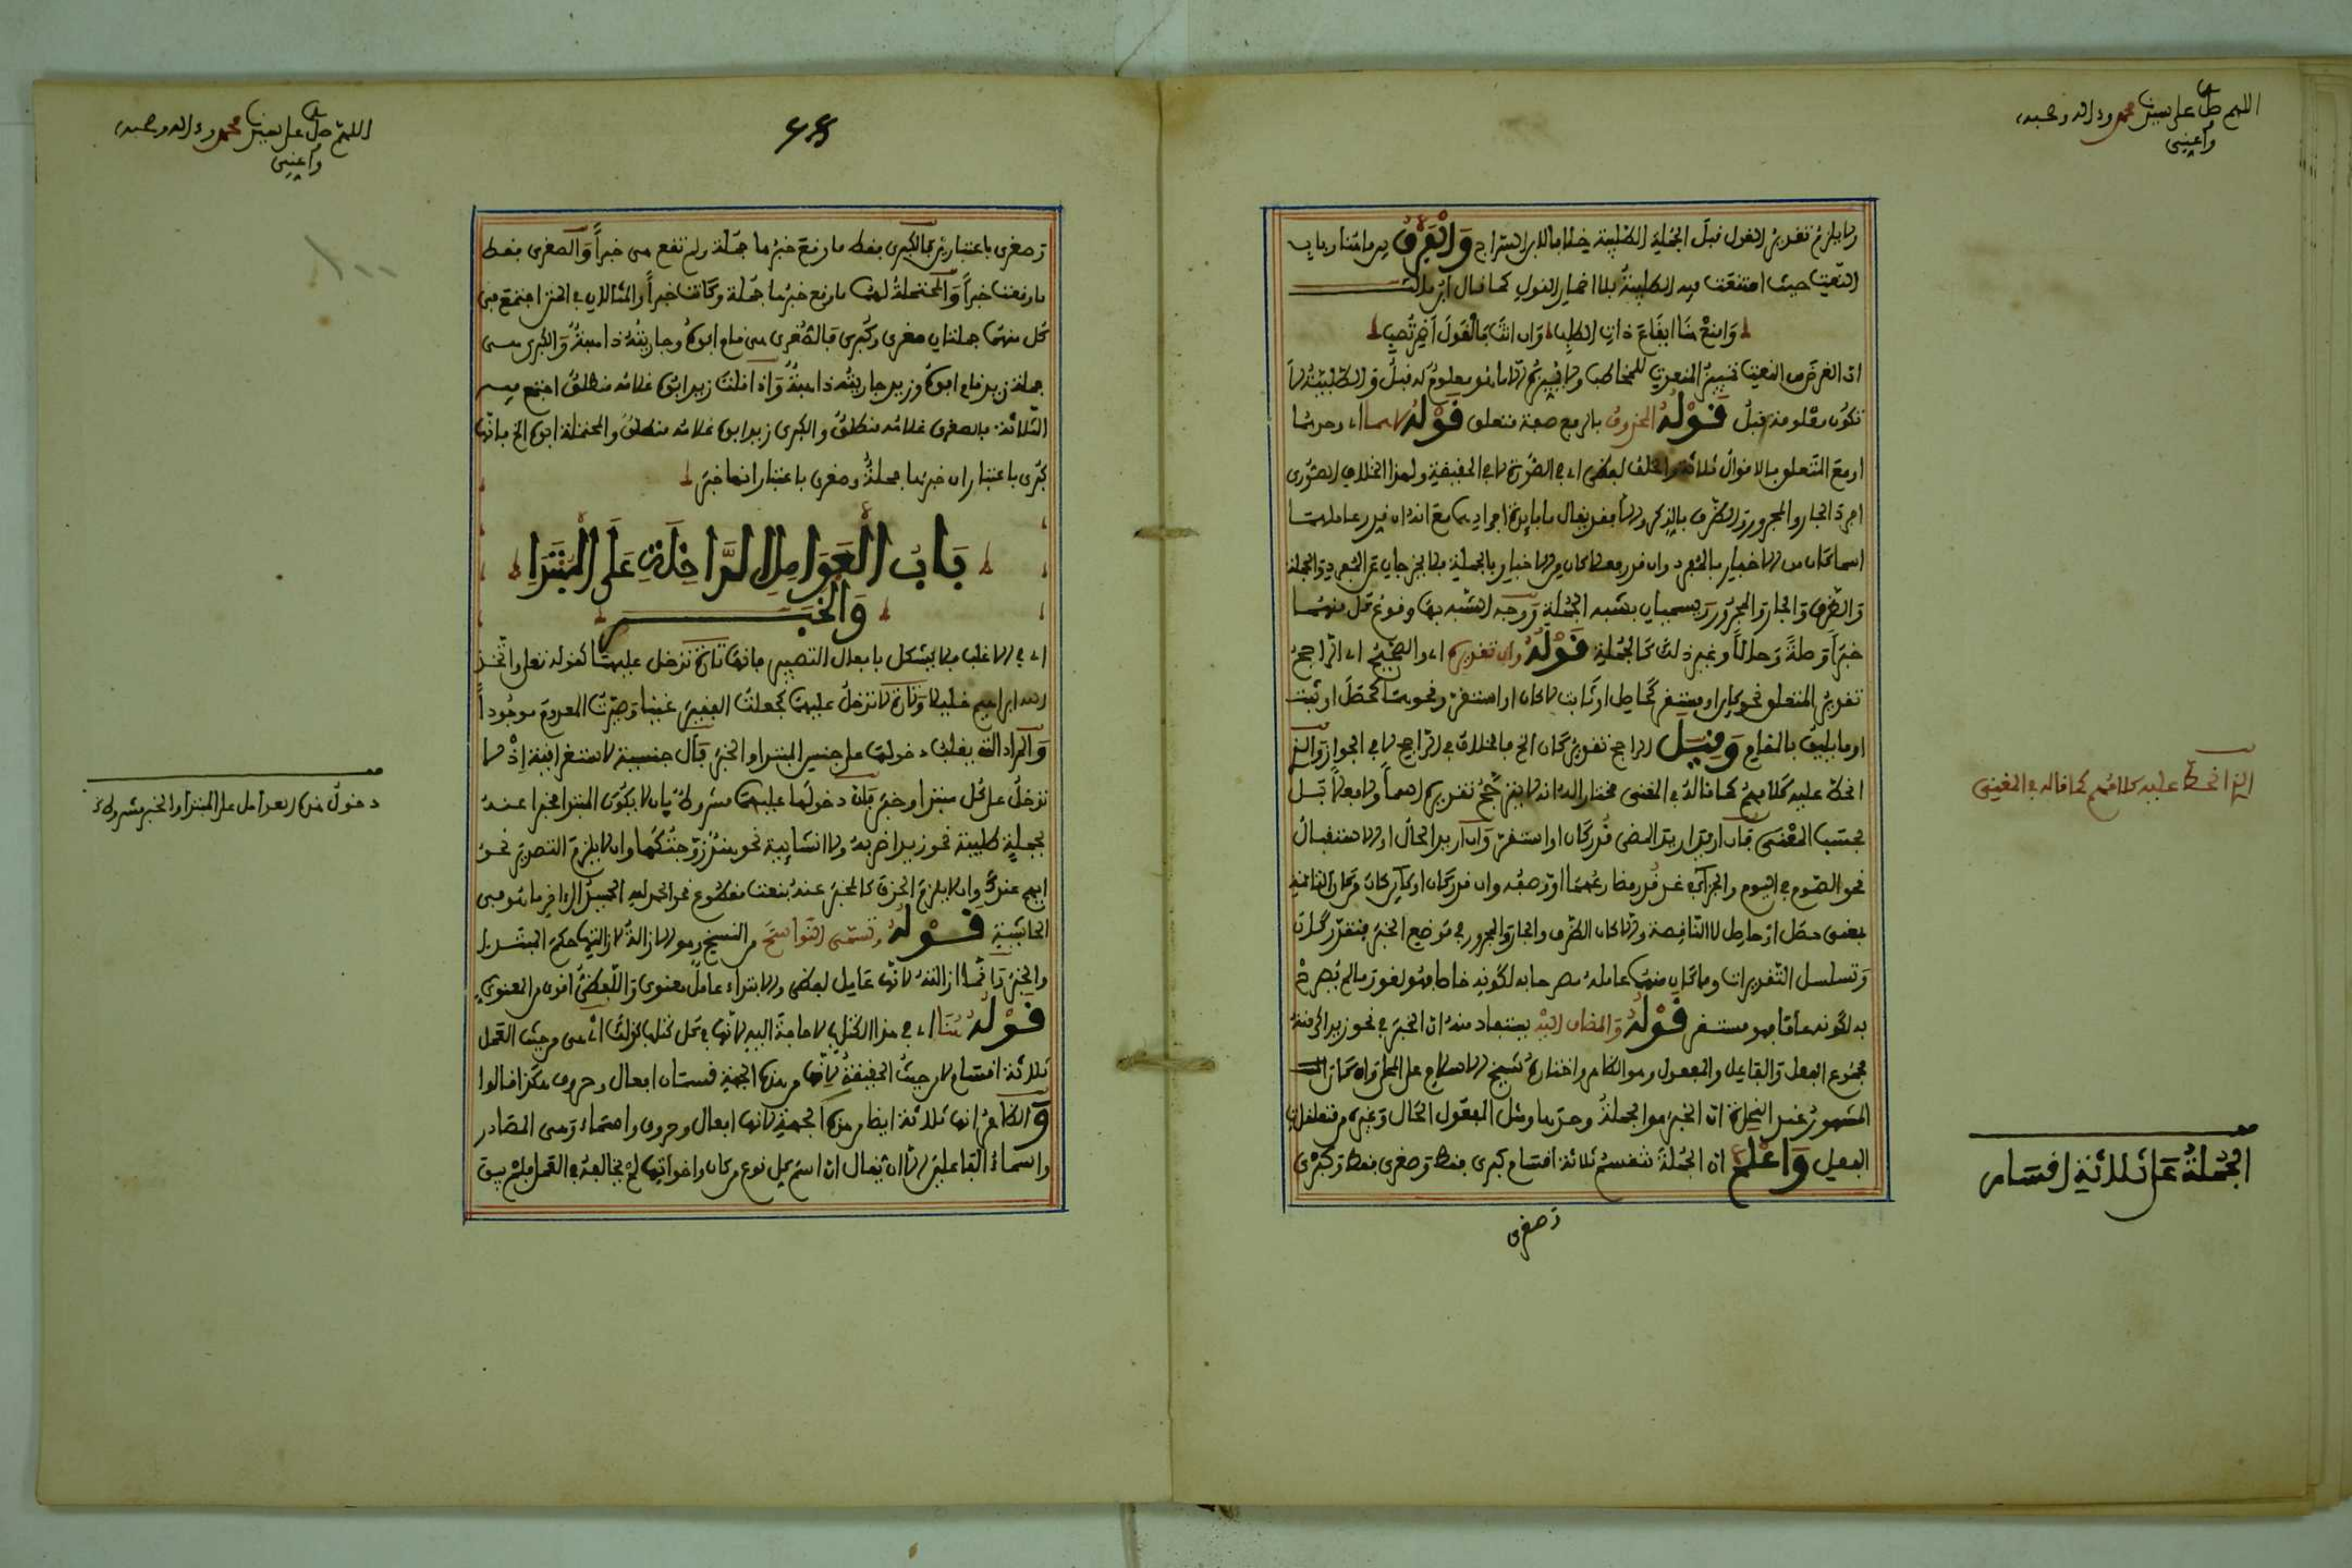 اللهم صل على سيدنا محمد وءاله وصحبه
وأعني
ولا يلزم تقدير القول قبل الجملة الطلبية خلافا لابن السراج والفرق بين ما هنا وباب
النعت حيث امتنعت فيه الطلبية بلا اضمار القول كما قال ابن مالك
وامنع هنا ايقاع ذات الطلب وان اتت فالقول اضمر تصب
ان الغرض من النعت تمييز المنعوت للمخاطب ولا يميزه الا ما هو معلوم له قبل والطلبية لا
تكون معلومة قبل قوله المحذوف بالرفع صفة متعلق قوله لاسما اي وحدهما
او مع المتعلق بالاقوال ثلاثة والخلف لفظي اي في الصورة لا في الحقيقة ولهذا الخلاف الصوري
افرد الجار والمجرور والظرف بالذكر والا فقد يقال ما فايدة افرادهما مع انه ان قدر عاملهما
اسما كان من الاخبار بالمفرد وان قدر فعلا كان من الاخبار بالجملة فلا يخرجان عن المفرد والجملة
والظرف والجار والمجرور ويسميان بشبه الجملة ووجه الشبه بها وقوع كل منهما
خبرا وصلة وحالا وغير ذلك كالجملة قوله وان تقديره اي والصحيح اي الراجح
تقدير المتعلق نحو كاين او مستقر كحاصل او ثابت لا كان او استقر ونحوهما كحصل او ثبت
او ما يليق بالمقام وقيل الراجح تقدير كان الخ فالخلاف في الراجح لا في الجواز والذي
انحط عليه كلامهم كما قاله في المغني مختارا له انه لا يترجح تقديره اسما ولا فعلا بل
بحسب المعنى فان اريد المضي قدر كان او استقر وان اريد الحال او الاستقبال
نحو الصوم في اليوم والجزاء في غد قدر مضارعهما او وصفه وان قدر كان او كاين كان من كان التامة
بمعنى حصل او حاصل لا الناقصة والا كان الظرف والجار والمجرور في موضع الخبر فتقدر كان
وتسلسل التقديرات وما كان منهما عامله مصرحا به لكونه خاصا فهو لغو وما لم يصرح
به لكونه عاما فهو مستقر قوله والمضاف اليه يستفاد منه ان الخبر في نحو زيد اكرمته
مجموع الفعل والفاعل والمفعول وهو الظاهر واختاره شيخ الاسلام على المحلي وان كان
المشهور عند النحاة ان الخبر هو الجملة وحدها ومثل المفعول الحال وغيره من متعلقات
الفعل واعلم ان الجملة تنقسم ثلاثة اقسام كبرى فقط وصغرى فقط وكبرى
وصغرى
الذي انحط عليه كلامهم كما قاله في المغني
الجملة على ثلاثة اقسام
اللهم صل على سيدنا محمد وءاله وصحبه
وأعني
وصغرى باعتبارين فالكبرى فقط ما وقع خبرها جملة ولم تقع هي خبرا والصغرى فقط
ما وقعت خبرا والمحتملة لهما ما وقع خبرها جملة وكانت خبرا والمثالان في المتن اجتمع في
كل منهما جملتان صغرى وكبرى فالصغرى هي قام ابوه وجاريته ذاهبة والكبرى هي
جملة زيد قام ابوه وزيد جاريته ذاهبة واذا قلت زيد ابوه غلامه منطلق اجتمع فيه
الثلاثة فالصغرى غلامه منطلق والكبرى زيد ابوه غلامه منطلق والمحتملة ابوه الخ فانها
كبرى باعتبار ان خبرها جملة وصغرى باعتبار انها خبر
باب العوامل الداخلة على المبتدا
والخبر
اي في الاغلب فلا يشكل بافعال التصيير فانها تارة تدخل عليهما كقوله تعلى واتخذ
الله ابراهيم خليلا وتارة لا تدخل عليهما كجعلت الفقير غنيا وصيرت المعدوم موجودا
والمراد انه يغلب دخولها على جنس المبتدا والخبر فأل جنسية لا استغراقية إذ لا
تدخل على كل مبتدا وخبر فان دخولها عليهما مشروط بان لا يكون المبتدا مخبرا عنه
بجملة طلبية نحو زيد اضربه ولا انشايية نحو هند زوجتكها وان لا يلزم التصدير نحو
ايهم عندك وان لا يلزم الحذف كالمخبر عنه بنعت مقطوع نحو الحمد لله الحميد الى اخر ما هو في
الحاشية قوله وتسمى النواسخ من النسخ وهو الازالة لازالتها حكم المبتدا
والخبر وانما ازالته لانها عامل لفظي والابتداء عامل معنوي واللفظي اقوى من المعنوي
قوله هنا اي في هذا الكتاب لا حاجة اليه لانها في كل كتاب كذلك اي هي من حيث العمل
ثلاثة اقسام لا من حيث الحقيقة لانها من هذه الجهة قسمان افعال وحروف هكذا قالوا
والظاهر انها ثلاثة ايضا من هذه الجهة لانها افعال وحروف واسماء وهي المصادر
واسماء الفاعلين الا ان يقال ان اسم كل نوع من كان واخواتها لم يخالفه في العمل فلم يبق
دخول هذه العوامل على المبتدا والخبر مشروط